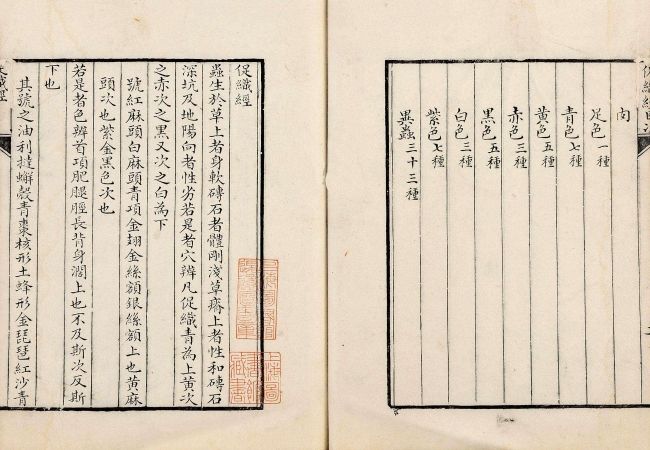 肉
足色一種
青色七種
黃色五種
赤色三種
黑色五種
白色三種
紫色七種
異蟲三十三種
促織經
蟲生於草上者身軟磚石者體剛淺草瘠上者性和磚石
深坑及地陽向者性劣若是者穴辨凡促織青為上黃次
之赤次之黑又次之白為下
號紅麻頭白麻頭青項金翅金絲額銀絲額上也黃麻
頭次也紫金黑色次也
若是者色辨首項肥腿脛長背身濶上也不及斯次反斯
下也
其號之油利撻蠏殼青棗核形土蜂形金琵琶紅沙青